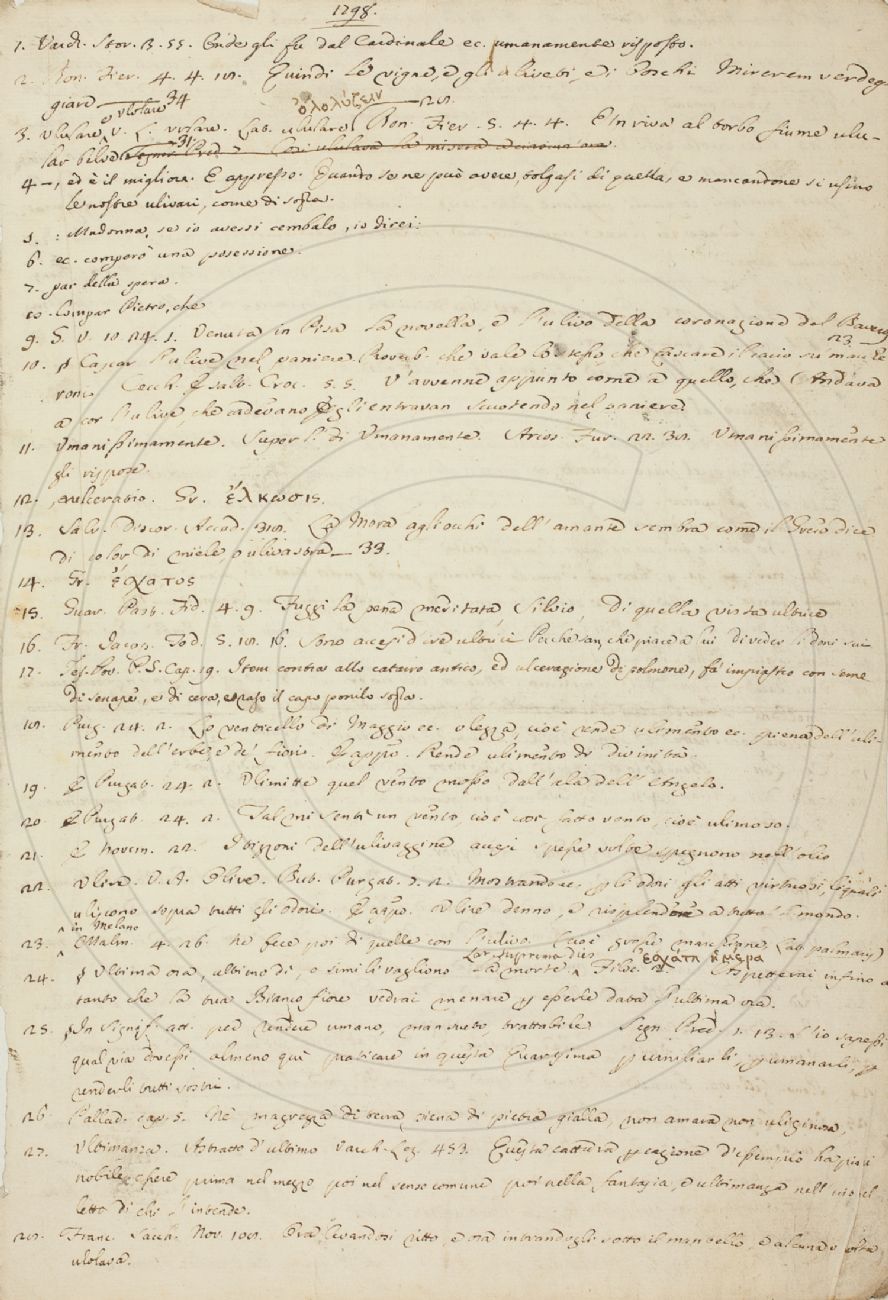 1298.
1. Varch. Stor. B. 55. Onde gli fu dal Cardinale ec. umanamente risposto.
2. Bon. Fier. 4. 4. 18. Quindi le vigne, e gli oliveti, e i boschi Mirerem verdeg
giare 34
3. Ululare, V. L. urlare. Lat. ululare ὀλολύζειν Bon. Fier. 5. 4. 4. E in riva al torbo fiume ulu-
lar belve
4 -, ed è il migliore. E appresso. Quando se ne può avere, tolgasi di quella, e mancandone si usino
le nostre ulivari, come di sopra.
5. : Madonna, se io avessi cembalo, io direi:
6. ec. comperò una possessione.
7. par della spera.
Compar Pietro, che
9. G. V. 10. 24. 1. Venuta in Pisa la novella, e l'ulivo della coronazione del
10. Cascar l'ulive nel paniere. Proverb. che vale lo stesso, che cascare il cacio su
roni. Cecch. Esalt. Croc. 5. 5. L'avvenne appunto come a quello, che Andava
a cor l'ulive, che cadevano E gli entravan scuotendo nel paniere
11. Umanissimamente. Superl. di Umanamente. Arios. Fur. 22. 38. Umanissimamente
gli rispose.
12. exulceratio. Gr. ἕλκωσις.
13. Salv. Discor. Accad. La Mora agli occhi dell'amante sembra come il Greco dice
di color di miele, o ulivastra 33.
14. Gr. ἔσχατος
15. Guar. Past. Fid. 4. 9. Fuggi la pena meritata, Silvio, Di quella vista ultrice
16. Fr. Jacop. Tod. 5. 18. 16. Sono accesi d'ire ultrici Perchè san, che piace a lui Di veder li Doni sui
17. Tes. Pov. P. S. Cap. 19. Item contra allo catarro antico, ed ulcerazione di polmone, fa impiastro con seme
di senape, e di cera, e raso il capo ponilo sopra.
18. Purg. 24. 2. Lo venticello di Maggio ec. olezza, cioè rende ulimento ec. piena dell'uli-
mento dell'erbe, e de' fiori. E appo. Rende ulimento di Divinità.
19. E Purgat. 24. 2. Ulimitte quel vento mosso dall'ala dell'Angelo.
20 E Purgat. 24. 2. Tal mi sentì un vento, cioè così fatto vento, cioè ulimoso.
21. E Novem. 22. I bizzoni dell'ulivaggine a spesse volte spegnono nell'olio
22. Ulire. V. A. Olire. But. Purgat. 7. 2. Mostrando ec. gli odori gli atti virtuosi, li quali
uliscono sopra tutti gli odori. E appo. Ulire denno, e risplendere a tutto 'l mondo.
in Melano
23. Malm. 4. 26. Ne fece poi di quelle con l'ulivo. (cioè grosse marchiane, Lat. palmaris)
24. Ultima ora, ultimo dì, e simili vagliono La morte. Lat. supremus dies ἐσχάτη ἡμέρα Filoc. 2. Aspetterai infino a
tanto che la tua Biancofiore vedrai menare p esserle data l'ultima ora.
25. In signif. att. per Rendere umano, mansueto, trattabile Segn. Pred. 1. 13. S'io sapessi
qual via dovessi almeno qui praticare in questa Quaresima p umiliarli, p umanarli, p
renderli tutti vostri.
26 Pallad. cap. 5. Nè magrezza di terra piena di pietra gialla, non amara non uliginosa,
27. Ultimanza. Astratto d'ultimo Varch. Lez. 453. Questa cattura p cagione d'esempio ha più
nobile essere prima nel mezzo poi nel senso comune poi nella fantasia, e ultimanza nell'intel
letto di chi l'intende.
28. Franc. Sacch. Nov. 108. Ora levandosi ritto, e ora intrandogli sotto il mantello, e alcuna volta
ulolava.